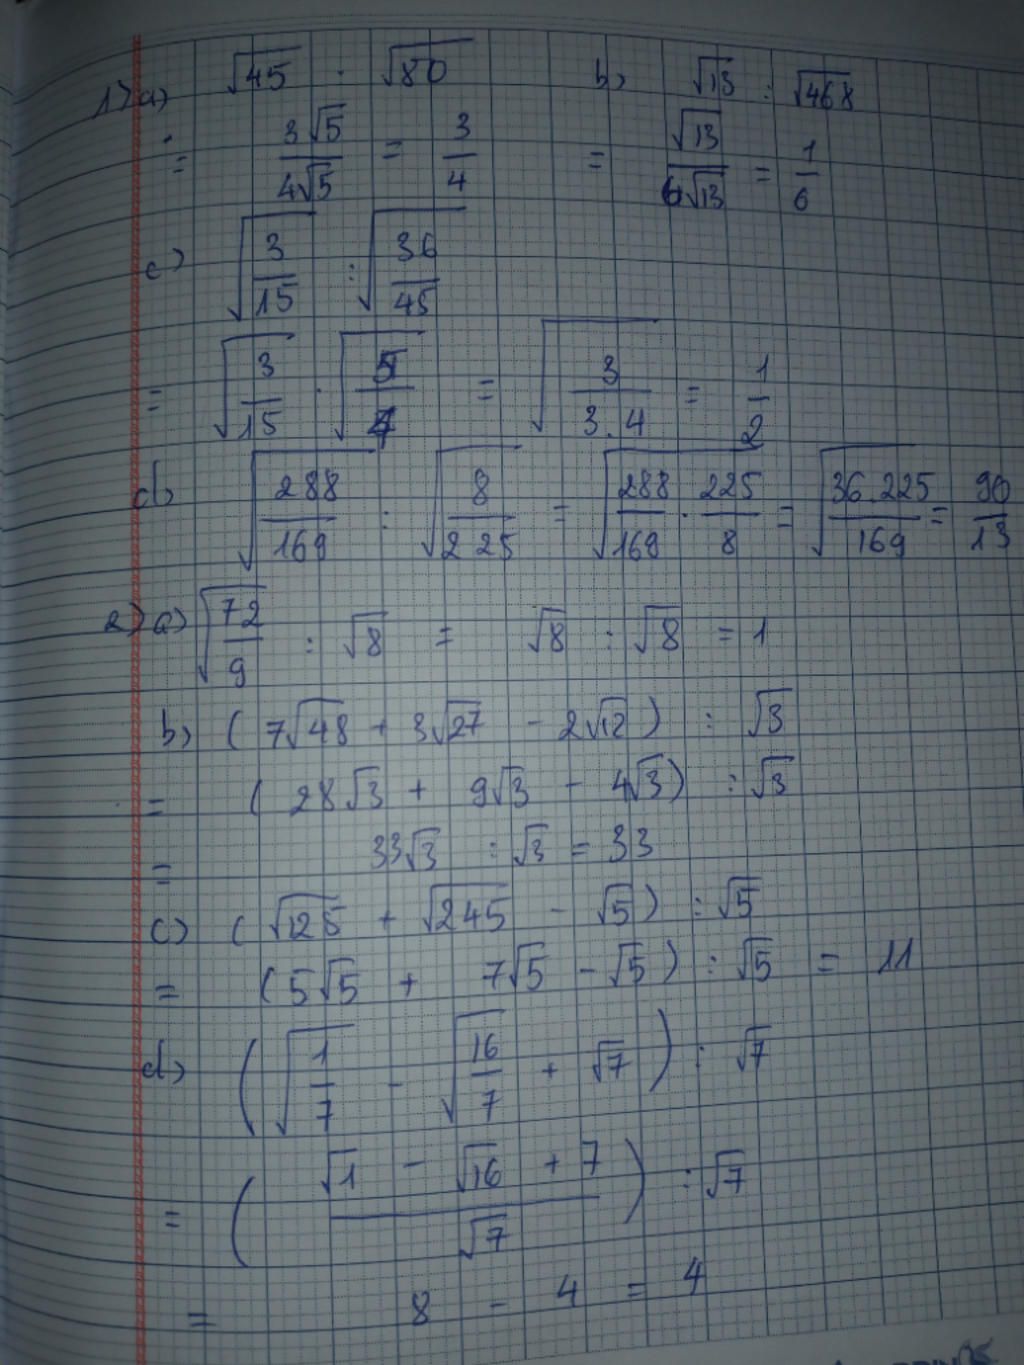 1) a) √45 : √80 b) √13 : √468
= 3√5/4√5 = 3/4 = √13/6√13 = 1/6
c) √(3/15) : √(36/45)
= √(3/15) · √(5/4) = √(3/(3.4)) = 1/2
d) √(288/169) : √(8/225) = √(288/169 · 225/8) = √(36.225/169) = 90/13
2) a) √(72/9) : √8 = √8 : √8 = 1
b) (7√48 + 3√27 - 2√12) : √3
= (28√3 + 9√3 - 4√3) : √3
= 33√3 : √3 = 33
c) (√125 + √245 - √5) : √5
= (5√5 + 7√5 - √5) : √5 = 11
d) (√(1/7) - √(16/7) + √7) : √7
= ((√1 - √16 + 7)/√7) : √7
= 8 - 4 = 4